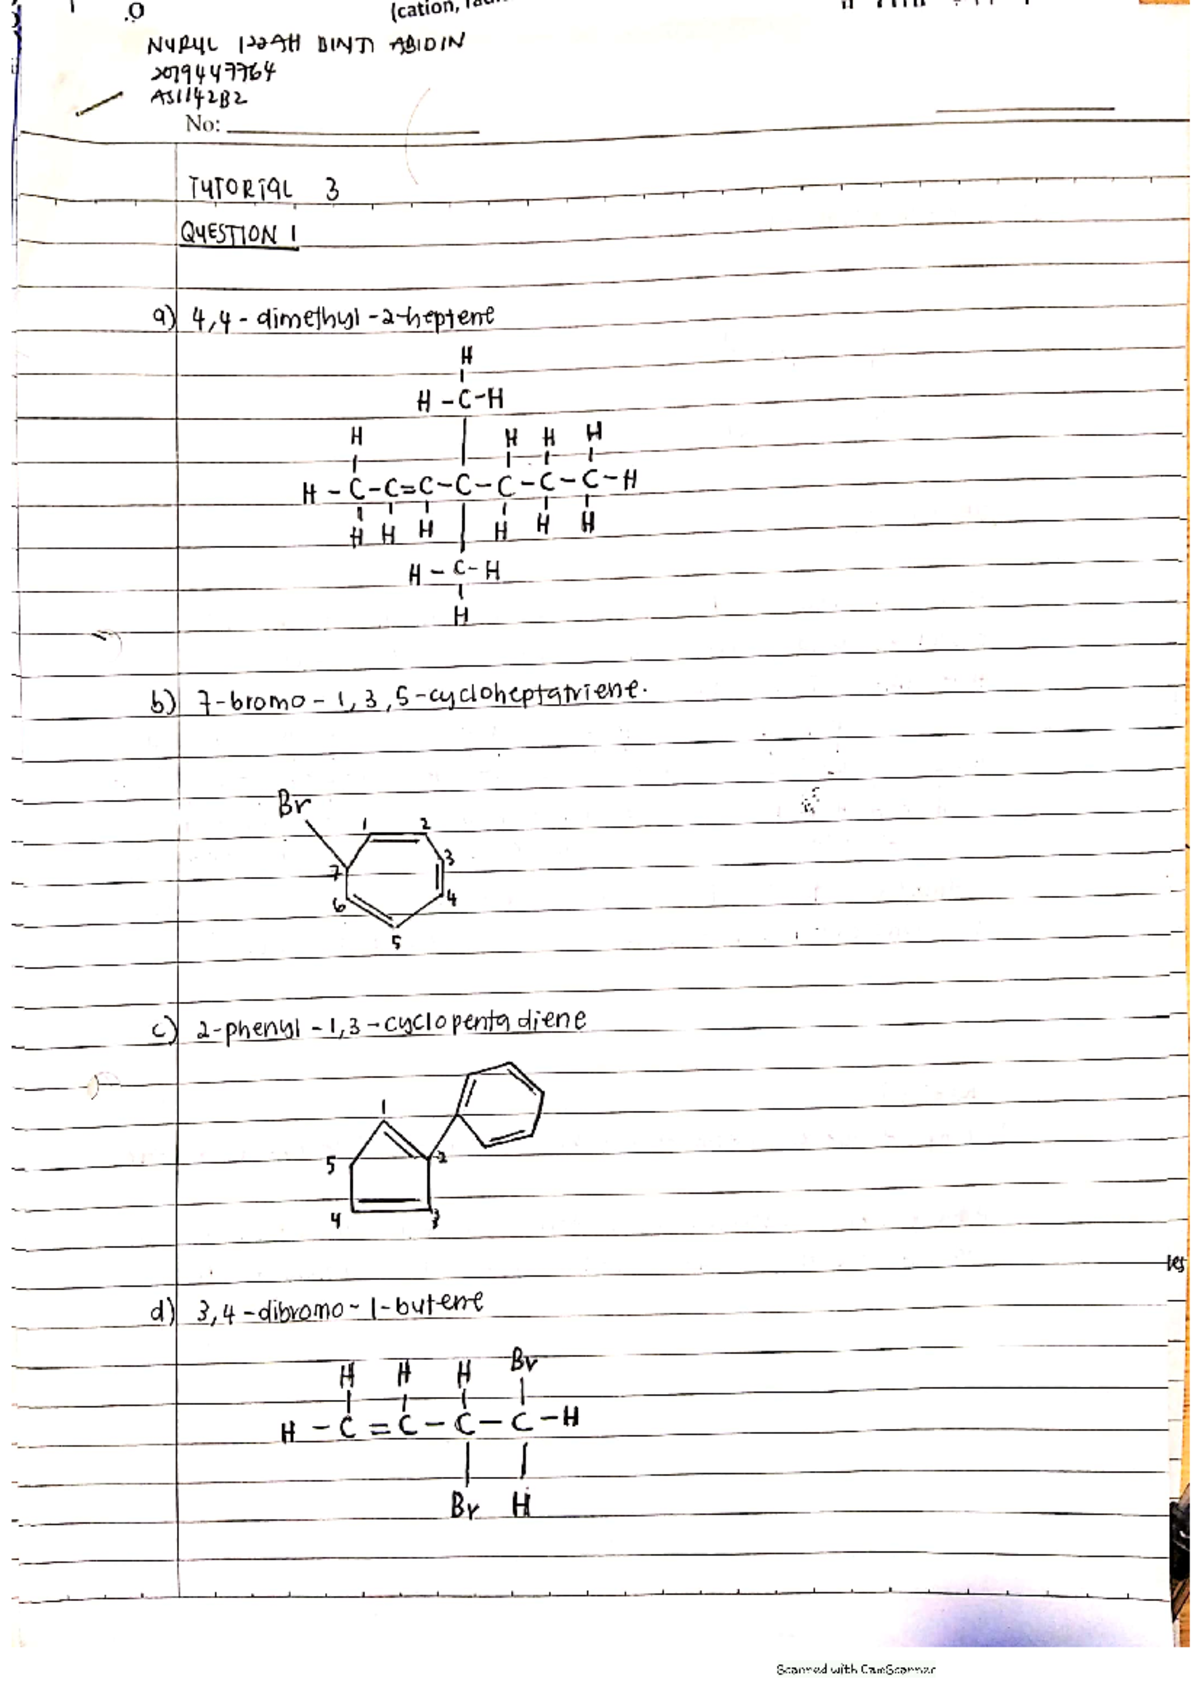 (cation,
NURUL IZZAH BINTI ABIDIN
2019447764
AS1142B2
No:
TUTORIAL 3
QUESTION 1
a) 4,4 - dimethyl -2-heptene
H
H - C - H
H H H H
H - C - C = C - C - C - C - C - H
H H H H H H
H - C - H
H
b) 7-bromo - 1,3,5-cycloheptatriene.
Br
1 2
3
7
6 4
5
c) 2-phenyl - 1,3 - cyclopentadiene
1
5 2
4 3
d) 3,4 - dibromo - 1-butene
H H H Br
H - C = C - C - C - H
Br H
Scanned with CamScanner